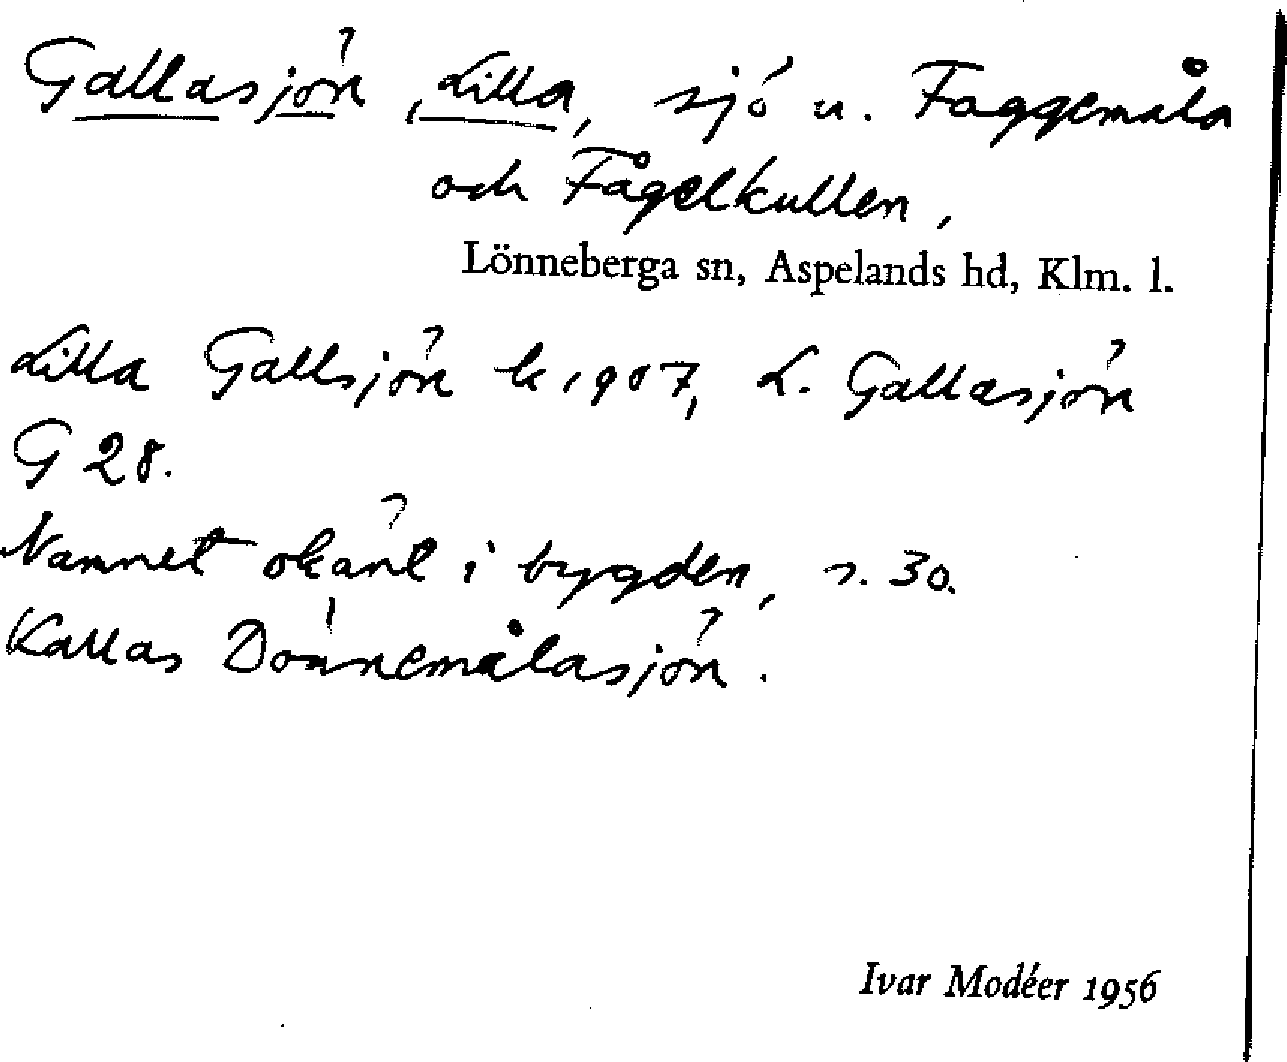 Gallasjön, Lilla, sjö u. Faggemåla
och Fågelkullen,
Lönneberga sn, Aspelands hd, Klm. l.
Lilla Gallsjön k 1907, L. Gallasjön
G 28.
Namnet okänt i bygden, s. 30.
Kallas Dönnemålasjön.
Ivar Modéer 1956